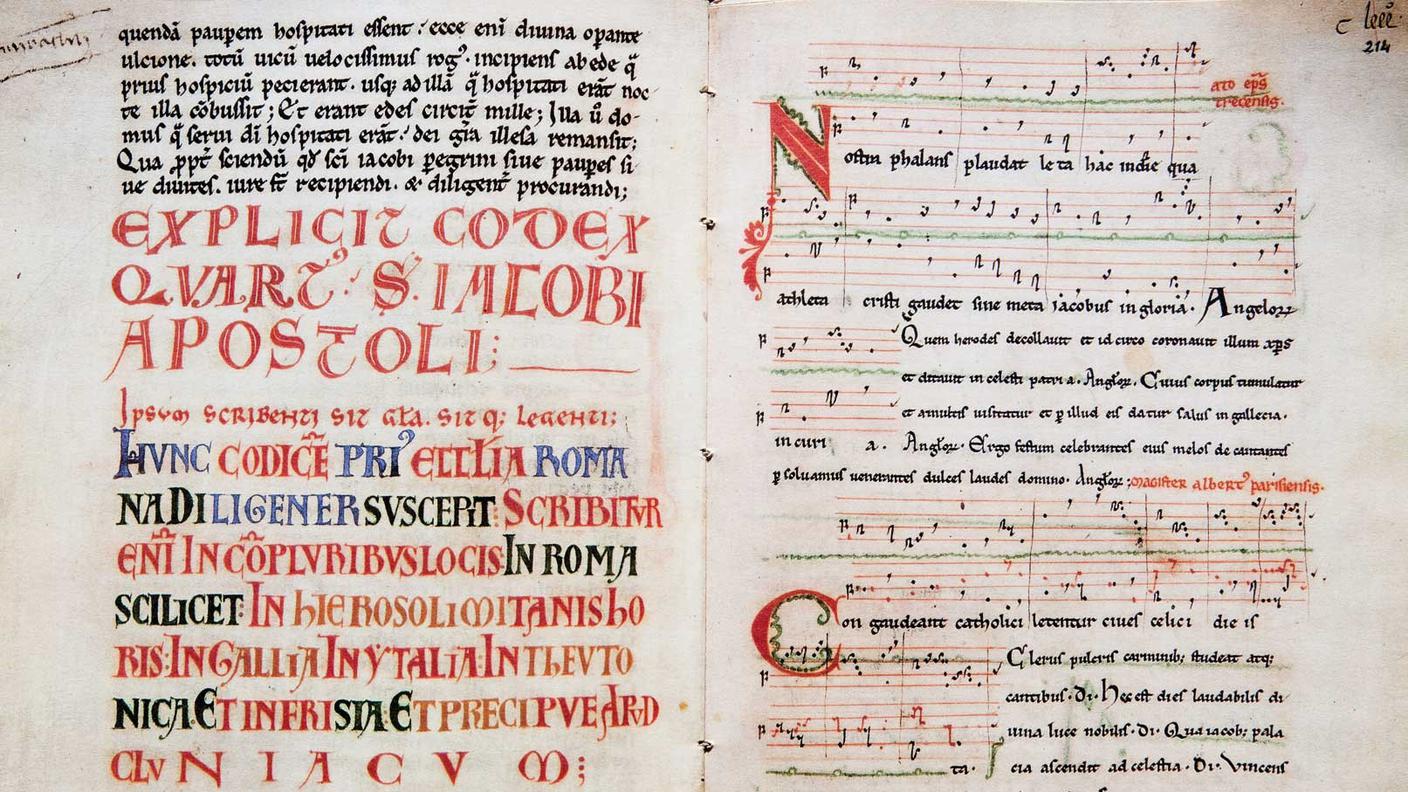 quendā paupem hospitati essent; ecce eni diuina opante
ulcione. totū uicū uelocissimus rogꝰ incipiens ab ede q̄
prius hospiciū pecierant. usq; ad illā q̄ hospitati erāt noc
te illa cōbussit; Et erant edes circit̄ mille; Illa ū do-
mus q̄ serui dī hospitati erāt. dei gr̄a illesa remansit;
Qua ꝓpt̄ sciendū qđ sc̄i iacobi pegrini siue paupes si
ue diuites. iure st̄ recipiendi. & diligent̄ procurandi;
EXPLICIT CODEX
QVARTꝰ S. IACOBI
APOSTOLI;
Ipsum scribenti sit gl̄a. sit q; legenti;
HVNC CODICĒ PRIꝰ ECCL̄IA ROMA
NA DILIGENER SVSCEPIT SCRIBITVR
ENĪ IN CŌPLVRIBVS LOCIS IN ROMA
SCILICET IN HIEROSOLIMITANIS HO
RIS IN GALLIA IN YTALIA IN THEVTO
NICA ET IN FRISIA ET PRECIPVE APVD
CLVNIACVM;
c leeē
214
ato ep̄s
trecensis.
Nostra phalans plaudat leta hac in die qua
athleta cristi gaudet sine meta iacobus in gloria. Angeloꝝ
Quem herodes decollauit et id circo coronauit illum xp̄s
et ditauit in celesti patria. Angl̄oꝝ. Cuius corpus tumulatur
et a multis uisitatur et ꝑ illud eis datur salus in gallecia.
in curi a. Angl̄oꝝ. Ergo festum celebrantes eius melos decantantes
ꝑsoluamus uenerantes dulces laudes domino. Angl̄oꝝ; magister albertꝰ parisiensis.
Con gaudeant catholici letentur ciues celici die is
Clerus pulcris carminib; studeat atq;
cantibus. Di. Hec est dies laudabilis di
uina luce nobilis. Di. Qua iacob; pala
ta. cia ascendit ad celestia. Di. Vincens